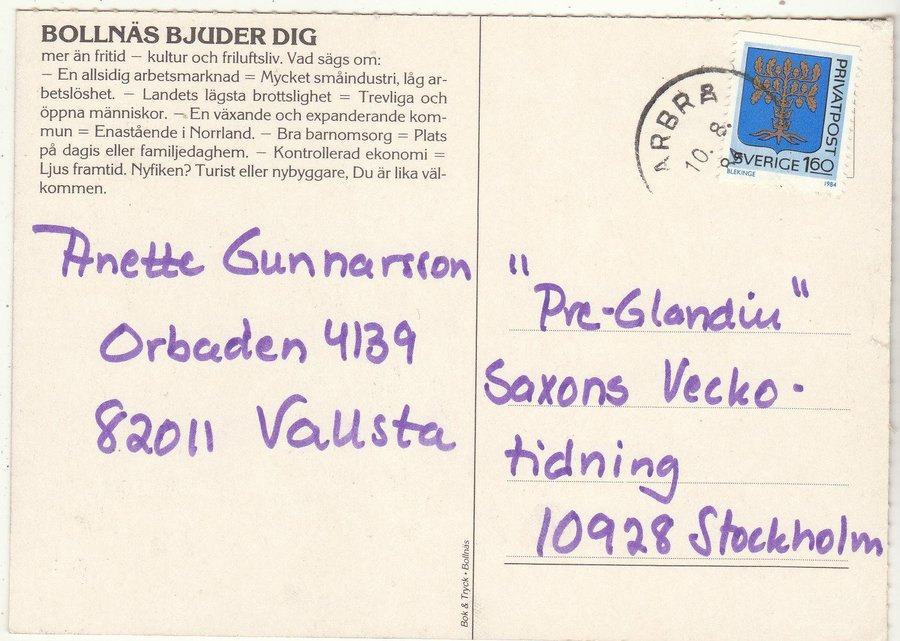 BOLLNÄS BJUDER DIG
mer än fritid – kultur och friluftsliv. Vad sägs om:
– En allsidig arbetsmarknad = Mycket småindustri, låg ar-
betslöshet. – Landets lägsta brottslighet = Trevliga och
öppna människor. – En växande och expanderande kom-
mun = Enastående i Norrland. – Bra barnomsorg = Plats
på dagis eller familjedaghem. – Kontrollerad ekonomi =
Ljus framtid. Nyfiken? Turist eller nybyggare, Du är lika väl-
kommen.
Anette Gunnarsson
Orbaden 4139
82011 Vallsta
Bok & Tryck • Bollnäs
ARBRÅ
10. 8.
PRIVATPOST
SVERIGE 160
BLEKINGE 1984
"Pre-Glandiu"
Saxons Vecko-
tidning
10928 Stockholm